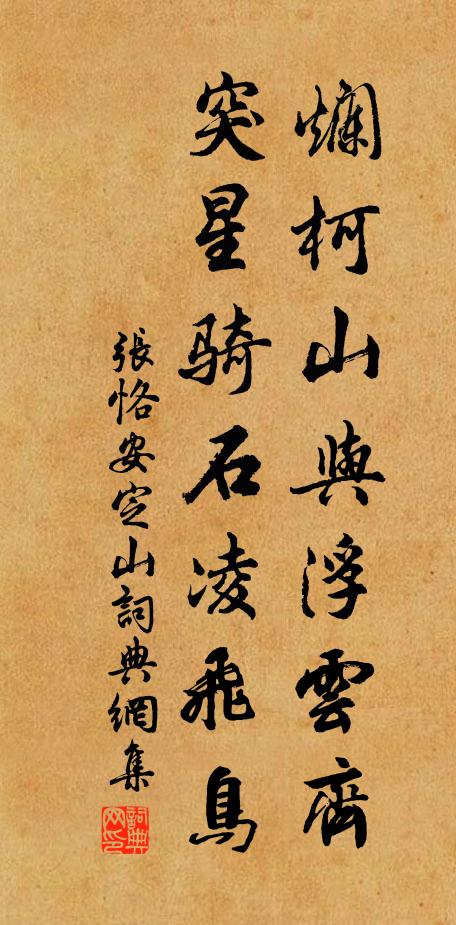 爛柯山與浮雲齊
突星騎石凌飛鳥
張恪安定山詞典網集
詞典网印